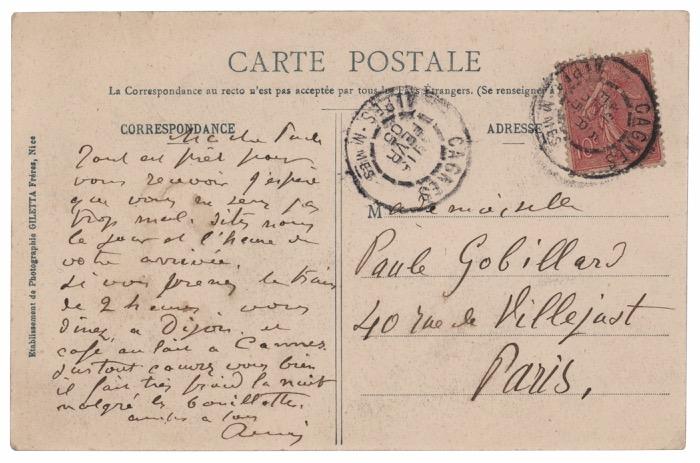 CARTE POSTALE
La Correspondance au recto n'est pas acceptée par tous les Pays Étrangers. (Se renseigner à
CORRESPONDANCE
ADRESSE
Etablissement de Photographie GILETTA Frères, Nice
Ma chère Paule
Tout est prêt pour
vous recevoir j'espère
que vous ne serez pas
trop mal. Dites nous
le jour et l'heure de
votre arrivée.
Si vous prenez le train
de 2 heures vous
dinez a Dijon et
café au lait a Cannes
surtout couvrez vous bien
il fait très froid la nuit
malgré la bouillotte.
amitiés a tous
Mademoiselle
Paule Gobillard
40 rue de Villejust
Paris,
CAGNES
ALPES-MMES
CAGNES
ALPES-MMES